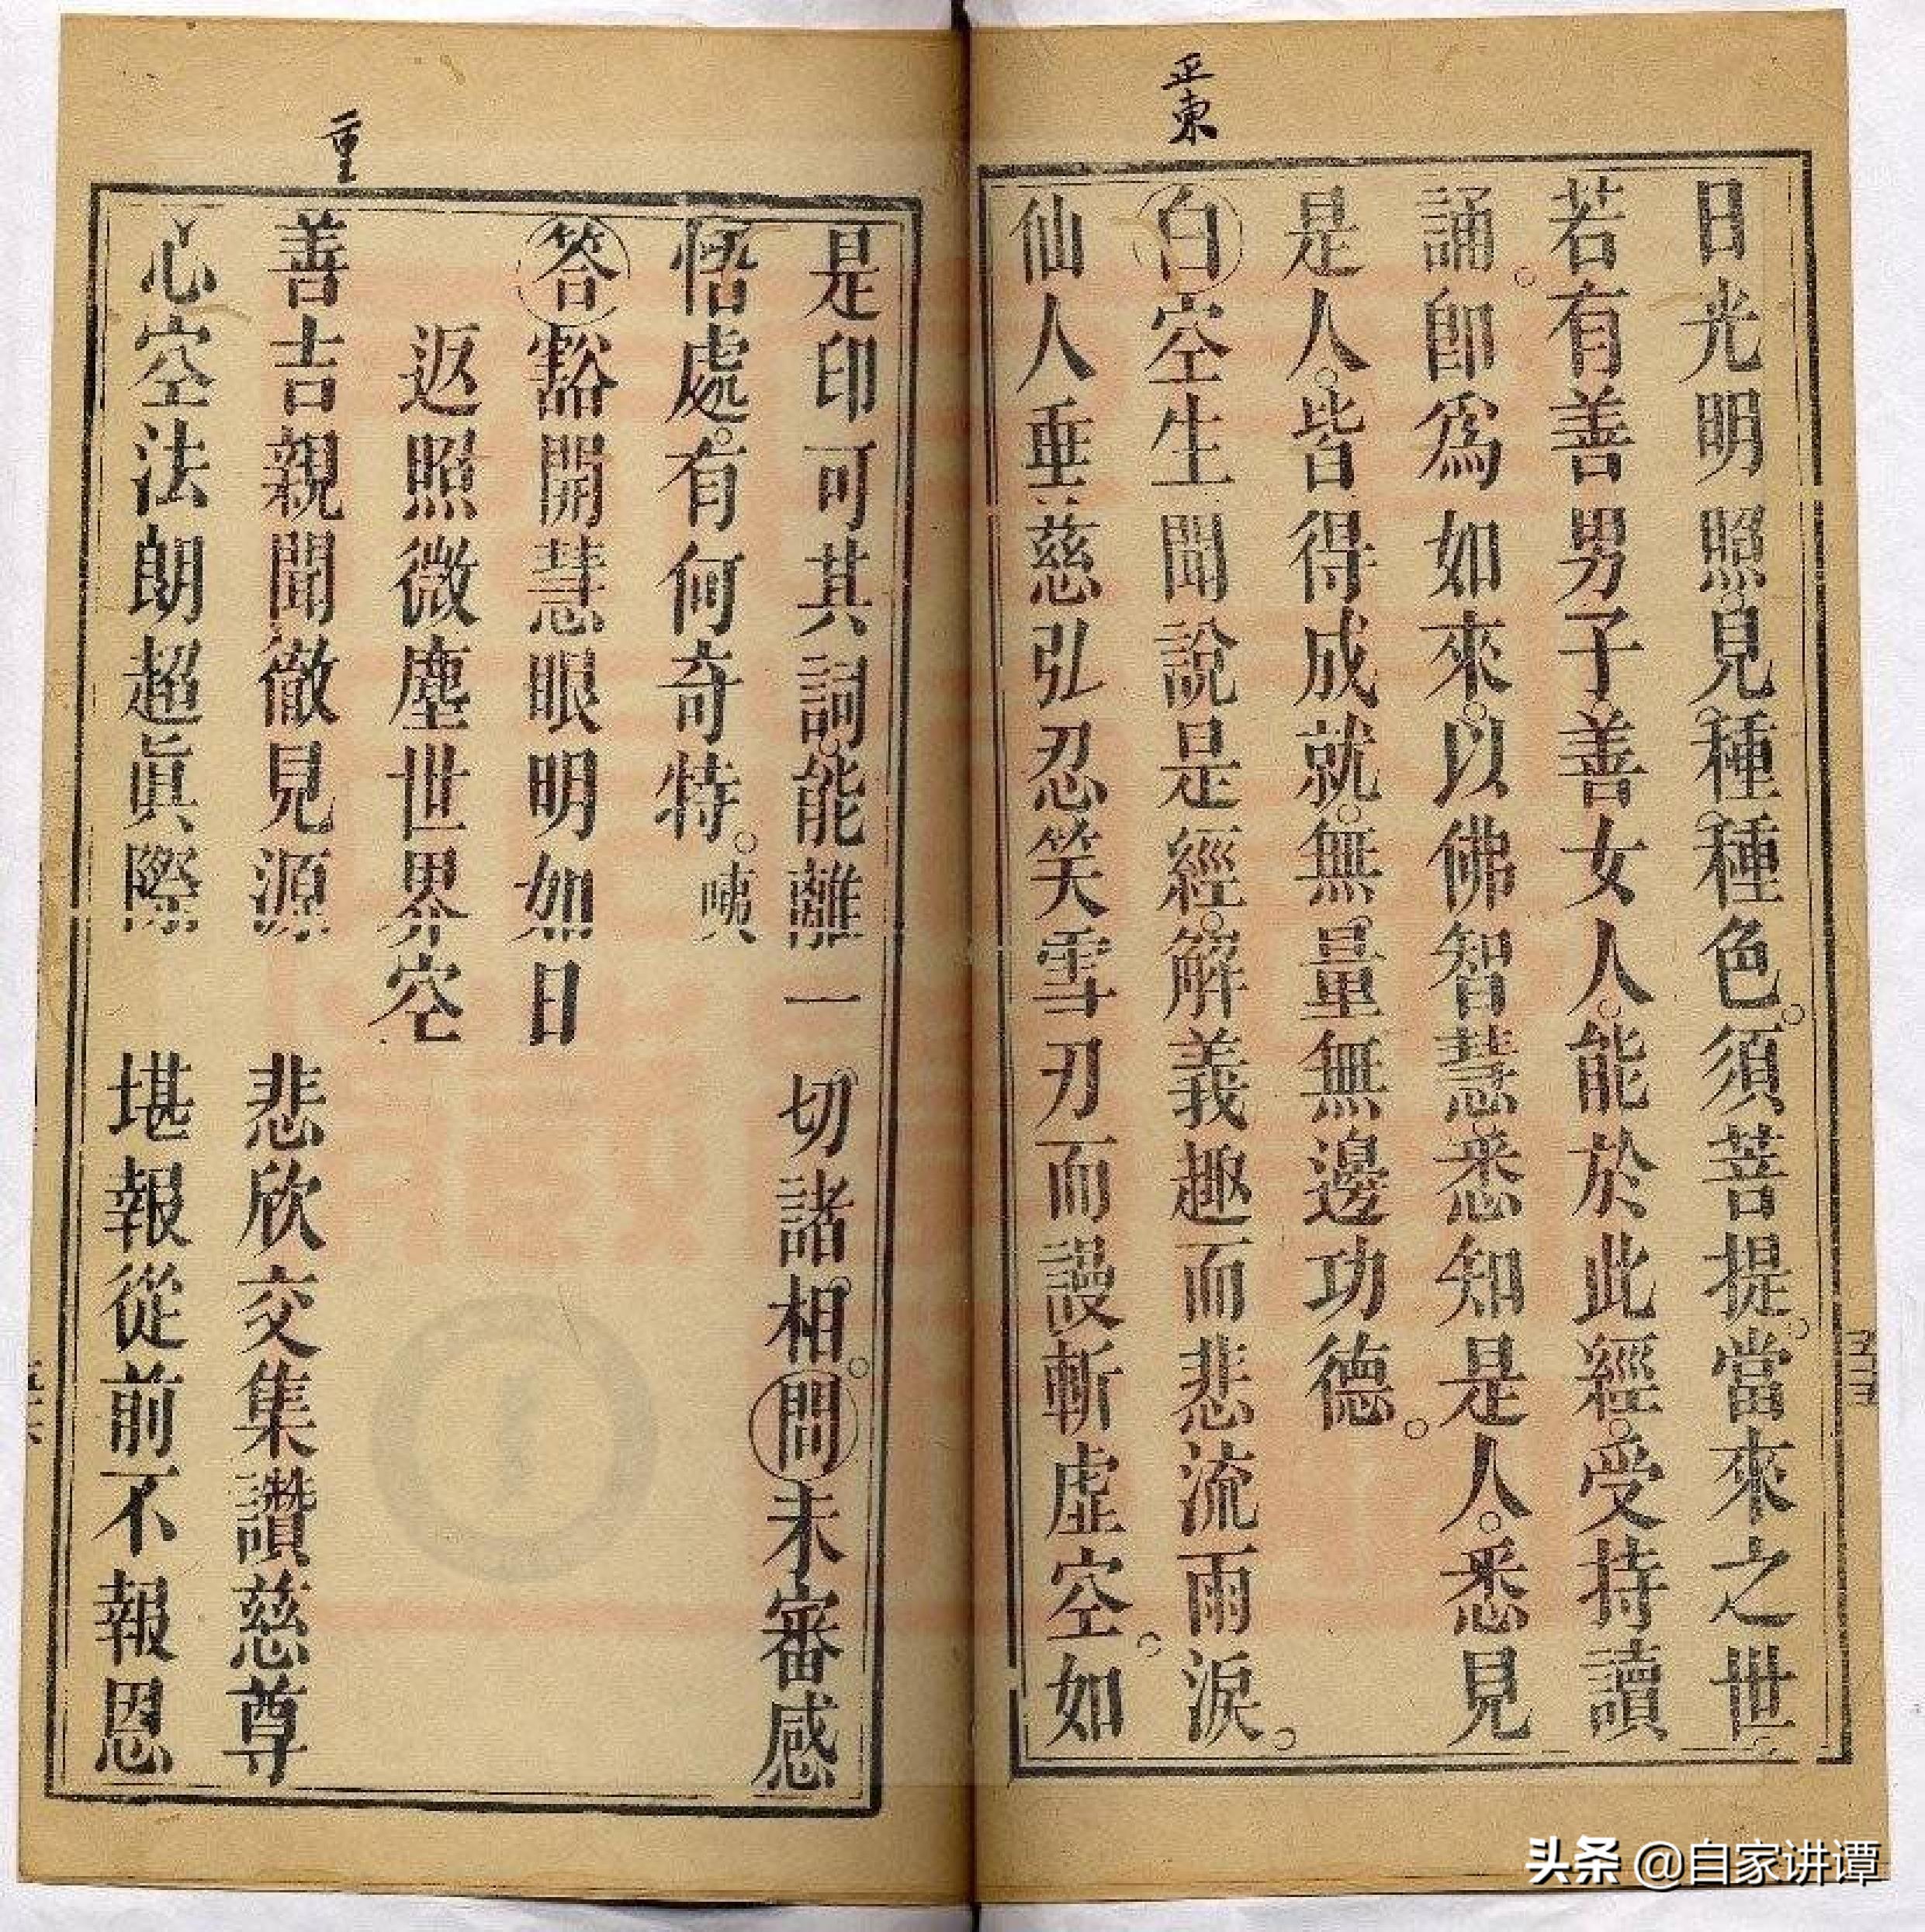 正東
日光明照見種種色。須菩提。當來之世
若有善男子。善女人。能於此經。受持讀
誦。卽爲如來。以佛智慧悉知是人。悉見
是人。皆得成就。無量無邊功德。
白空生聞說是經。解義趣而悲流雨淚。
仙人垂慈弘忍笑雪刃而謾斬虛空。如
一重
是印可其詞。能離一切諸相。問未審感
悟處。有何奇特。咦
答豁開慧眼明如日
返照微塵世界空
善吉親聞徹見源 悲欣交集讚慈尊
心空法朗超眞際 堪報從前不報恩
头条 @自家讲谭